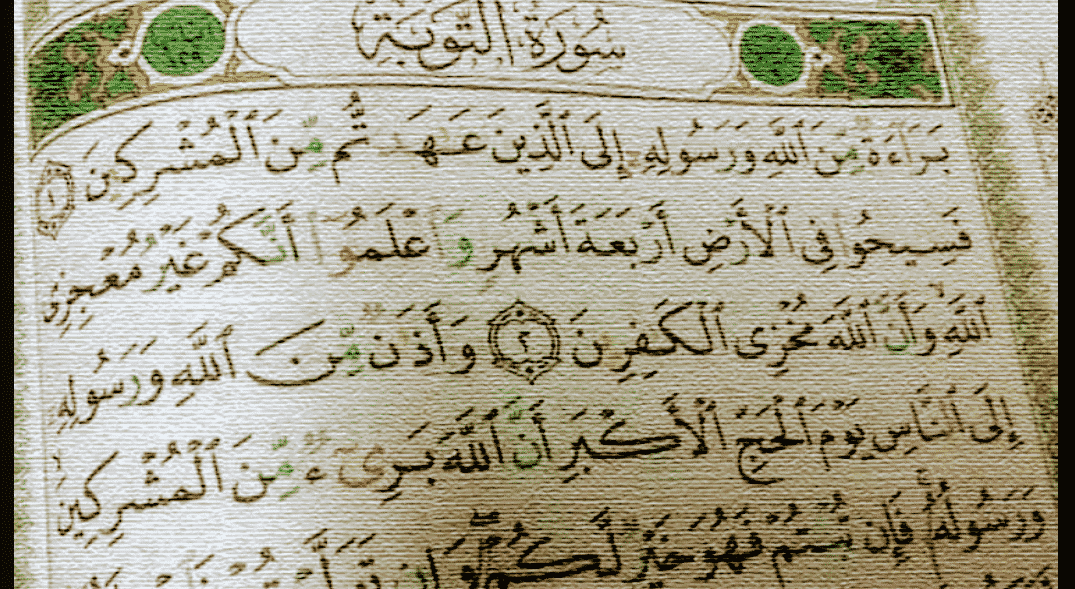 سُورَةُ التَّوْبَةِ
بَرَآءَةٌ مِّنَ ٱللَّهِ وَرَسُولِهِۦٓ إِلَى ٱلَّذِينَ عَـٰهَدتُّم مِّنَ ٱلْمُشْرِكِينَ ١
فَسِيحُوا۟ فِى ٱلْأَرْضِ أَرْبَعَةَ أَشْهُرٍ وَٱعْلَمُوٓا۟ أَنَّكُمْ غَيْرُ مُعْجِزِى
ٱللَّهِ وَأَنَّ ٱللَّهَ مُخْزِى ٱلْكَـٰفِرِينَ ٢ وَأَذَٰنٌ مِّنَ ٱللَّهِ وَرَسُولِهِۦٓ
إِلَى ٱلنَّاسِ يَوْمَ ٱلْحَجِّ ٱلْأَكْبَرِ أَنَّ ٱللَّهَ بَرِىٓءٌ مِّنَ ٱلْمُشْرِكِينَ
وَرَسُولُهُۥ فَإِن تُبْتُمْ فَهُوَ خَيْرٌ لَّكُمْ وَإِن